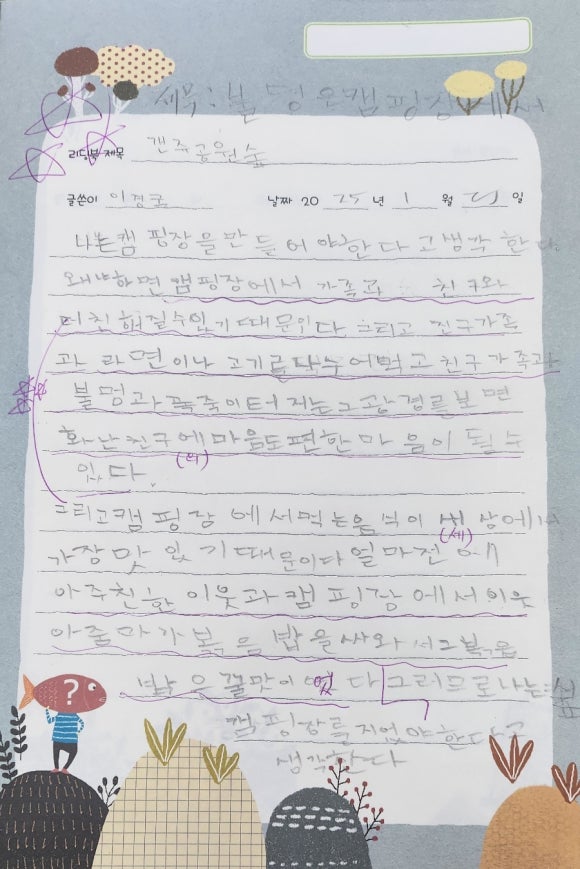 제목 : 불멍은 캠핑장에서
리딩북 제목 캔쥬공원숲
글쓴이 이경균 날짜 20 25 년 1 월 21 일
나는 캠핑장을 만들어야한다고 생각한다
왜냐하면 캠핑장에서 가족과 친구와
더 친해질수있기 때문이다 그리고 친구가족
과 라면이나 고기를 나누어먹고 친구가족과
불멍과 폭죽이터지는 그 광경를 보면
화난친구에 마음도 편한마음이 될 수
있다. (의)
그리고캠핑장에서먹는음식이 세상에서
(세)
가장 맛있기때문이다 얼마전에
아주친한 이웃과 캠핑장에서 이웃
아줌마가 볶음밥을 싸와서 그 볶음
밥은 꿀맛이였다 그러므로 나는
캠핑장를 지어야한다고
생각한다
?